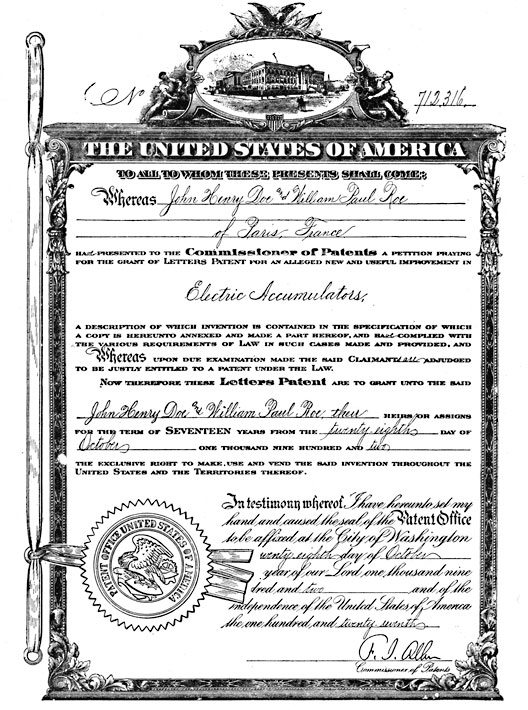 No 712,316.
THE UNITED STATES OF AMERICA
TO ALL TO WHOM THESE PRESENTS SHALL COME:
Whereas John Henry Doe and William Paul Roe
of Paris, France
HAVE PRESENTED TO THE Commissioner of Patents A PETITION PRAYING
FOR THE GRANT OF LETTERS PATENT FOR AN ALLEGED NEW AND USEFUL IMPROVEMENT IN
Electric Accumulators,
A DESCRIPTION OF WHICH INVENTION IS CONTAINED IN THE SPECIFICATION OF WHICH
A COPY IS HEREUNTO ANNEXED AND MADE A PART HEREOF, AND HAVE COMPLIED WITH
THE VARIOUS REQUIREMENTS OF LAW IN SUCH CASES MADE AND PROVIDED, AND
Whereas UPON DUE EXAMINATION MADE THE SAID CLAIMANTS are ADJUDGED
TO BE JUSTLY ENTITLED TO A PATENT UNDER THE LAW.
NOW THEREFORE THESE Letters Patent ARE TO GRANT UNTO THE SAID
John Henry Doe and William Paul Roe, their HEIRS OR ASSIGNS
FOR THE TERM OF SEVENTEEN YEARS FROM THE twenty eighth DAY OF
October ONE THOUSAND NINE HUNDRED AND two
THE EXCLUSIVE RIGHT TO MAKE, USE AND VEND THE SAID INVENTION THROUGHOUT THE
UNITED STATES AND THE TERRITORIES THEREOF.
In testimony whereof, I have hereunto set my
hand, and caused the seal of the Patent Office
to be affixed, at the City of Washington
wenty eighth day of October
year of our Lord, one thousand nine
dred and two and of the
independence of the United States of America
the one hundred, and twenty seventh
PATENT OFFICE UNITED STATES OF AMERICA
F. I. Allen
Commissioner of Patents